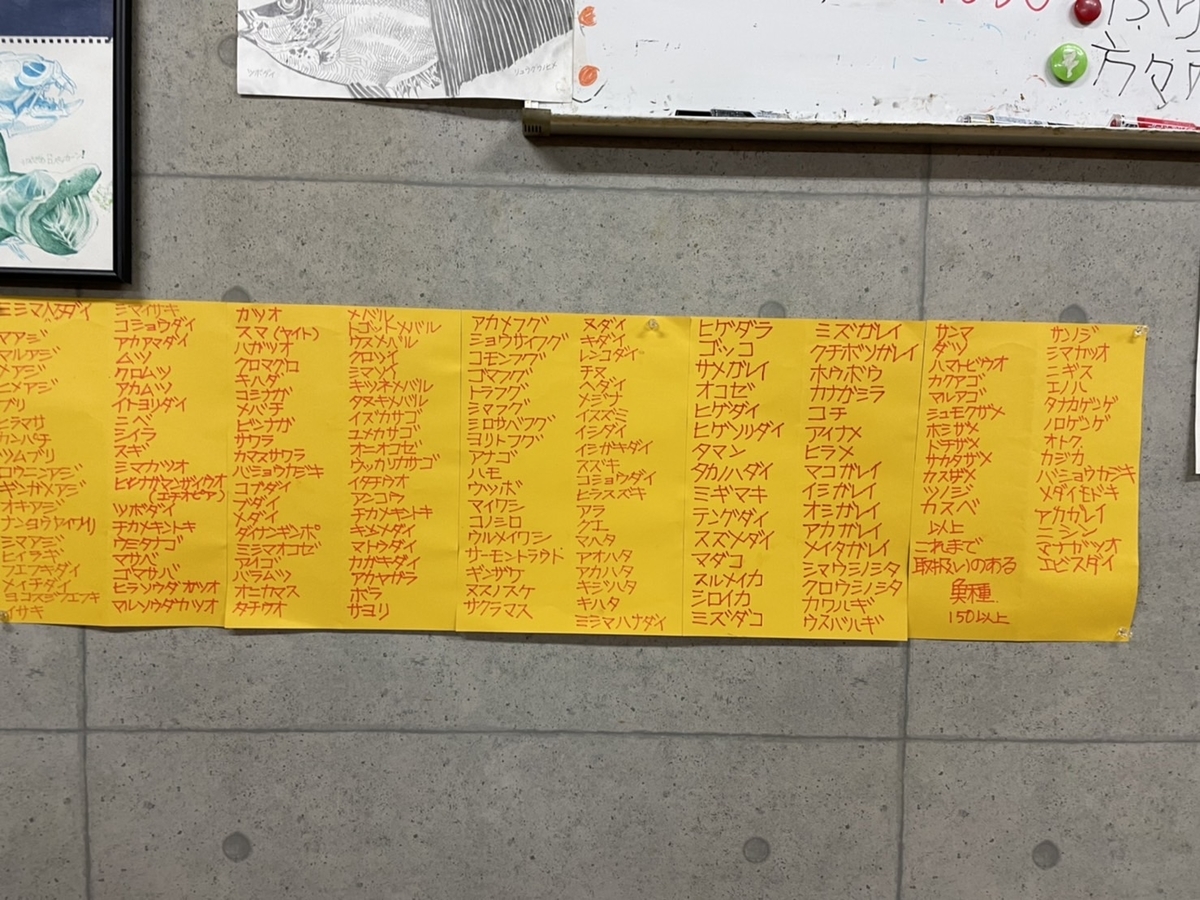 リュウグウノヒメ
ミシマハタダイ
マアジ
マルアジ
メアジ
ヒメアジ
ブリ
ヒラマサ
カンパチ
ツムブリ
ロウニンアジ
ギンガメアジ
オキアジ
ナンヨウアイブリ
シマアジ
ヒイラギ
フエフキダイ
メイチダイ
ヨコスジフエフキ
イサキ
シマイサキ
コショウダイ
アカアマダイ
ムツ
クロムツ
アカムツ
イトヨリダイ
ニベ
シイラ
スギ
シマガツオ
ヒレナガマンザイウオ
(エチオピア)
ツボダイ
チカメキントキ
アミタナゴ
マサバ
ゴマサバ
ヒラソウダガツオ
マルソウダカツオ
カツオ
スマ(ヤイト)
ハガツオ
クロマグロ
キハダ
コシナガ
メバチ
ビンナガ
サワラ
カマスサワラ
バショウカジキ
コブダイ
ブダイ
メダイ
ダイナンギンポ
ミシマオコゼ
アイゴ
バラムツ
オニカマス
タチウオ
メバル
トゴットメバル
ウスメバル
クロソイ
ミマゾイ
キツネメバル
タヌキメバル
イズカサゴ
ユメカサゴ
オニオコゼ
ウッカリカサゴ
イタチウオ
アンコウ
チカメキントキ
キンメダイ
マトウダイ
カガミダイ
アカヤガラ
ボラ
サヨリ
アカメフグ
ショウサイフグ
コモンフグ
ゴマフグ
トラフグ
シマフグ
シロサバフグ
ヨリトフグ
アナゴ
ハモ
ウツボ
マイワシ
コノシロ
ウルメイワシ
サーモントラウト
ギンザケ
ヌスノスケ
サクラマス
ヌダイ
キダイ
レンコダイ
チヌ
ヘダイ
メジナ
イスズミ
イシダイ
イシガキダイ
スズキ
コショウダイ
ヒラスズキ
アラ
クエ
マハタ
アオハタ
アカハタ
キジハタ
キハタ
ミシマハナダイ
ヒゲダラ
ゴッコ
サメガレイ
オコゼ
ヒゲダイ
ヒゲソリダイ
タマン
タカノハダイ
ミギマキ
テングダイ
スズメダイ
マダコ
スルメイカ
シロイカ
ミズダコ
ミズガレイ
クチボソガレイ
ホウボウ
カナガシラ
コチ
アイナメ
ヒラメ
マコガレイ
イシガレイ
オシガレイ
アカガレイ
メイタガレイ
シマウシノシタ
クロウシノシタ
カワハギ
ウスバハギ
サンマ
ダツ
ハマトビウオ
カクアゴ
マルアゴ
シュモクザメ
ホシザメ
ドチザメ
サカタザメ
カスザメ
ツノジ
カスベ
以上
これまで
取扱いのある
魚種
150以上
サンノジ
シマガツオ
ニギス
エノハ
タナカゲンゲ
ノロゲンゲ
オトク
カジカ
バショウカジキ
メダイモドキ
アカガレイ
ニシン
マナガツオ
エビスダイ